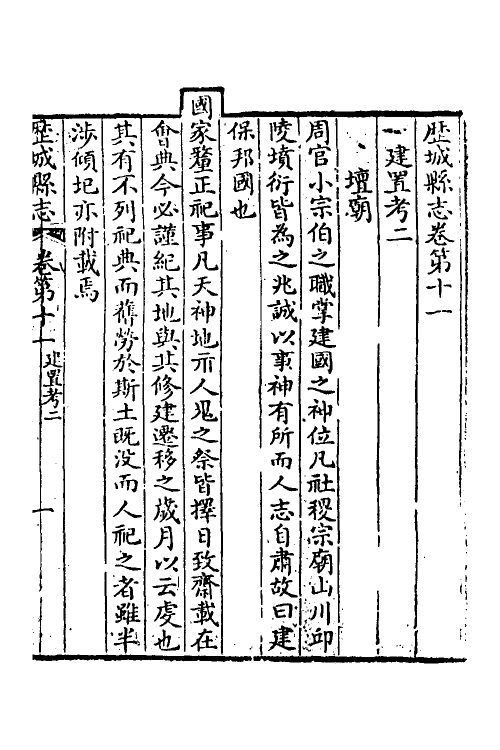 歷城縣志卷第十一
建置考二
壇廟
周官小宗伯之職掌建國之神位凡社稷宗廟山川邱
陵墳衍皆為之兆誠以事神有所而人志自肅故曰建
保邦國也
國家釐正祀事凡天神地示人鬼之祭皆擇日致齋載在
會典今必謹紀其地與其修建遷移之歲月以云虔也
其有不列祀典而舊勞於斯土既没而人祀之者雖半
涉傾圮亦附載焉
歷城縣志 卷第十一 建置考二 一